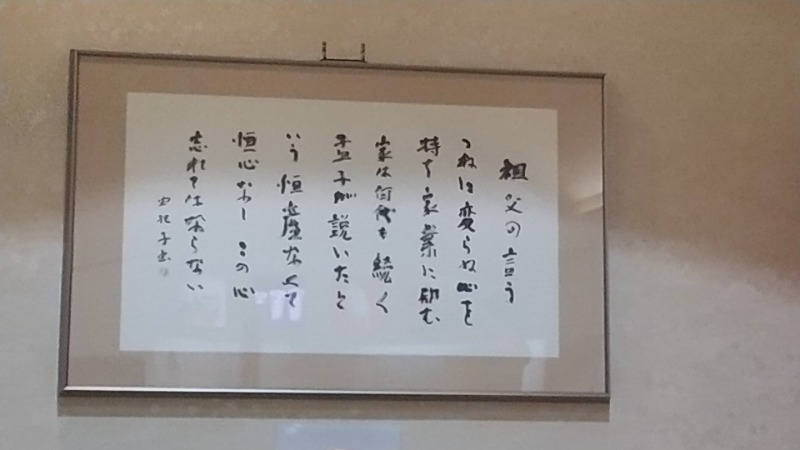 祖父の言う
つねに変らぬ心を
持ち家業に励む
家は何代も続く
孟子が説いたと
いう恒産なくて
恒心なし この心
忘れてはならない